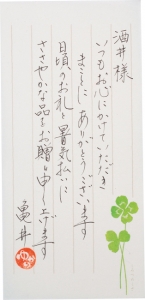 酒井 様
いつもお心にかけていただき
まことにありがとうございます
日頃のお礼と暑気払いに
ささやかな品をお贈り申し上げます
亀井